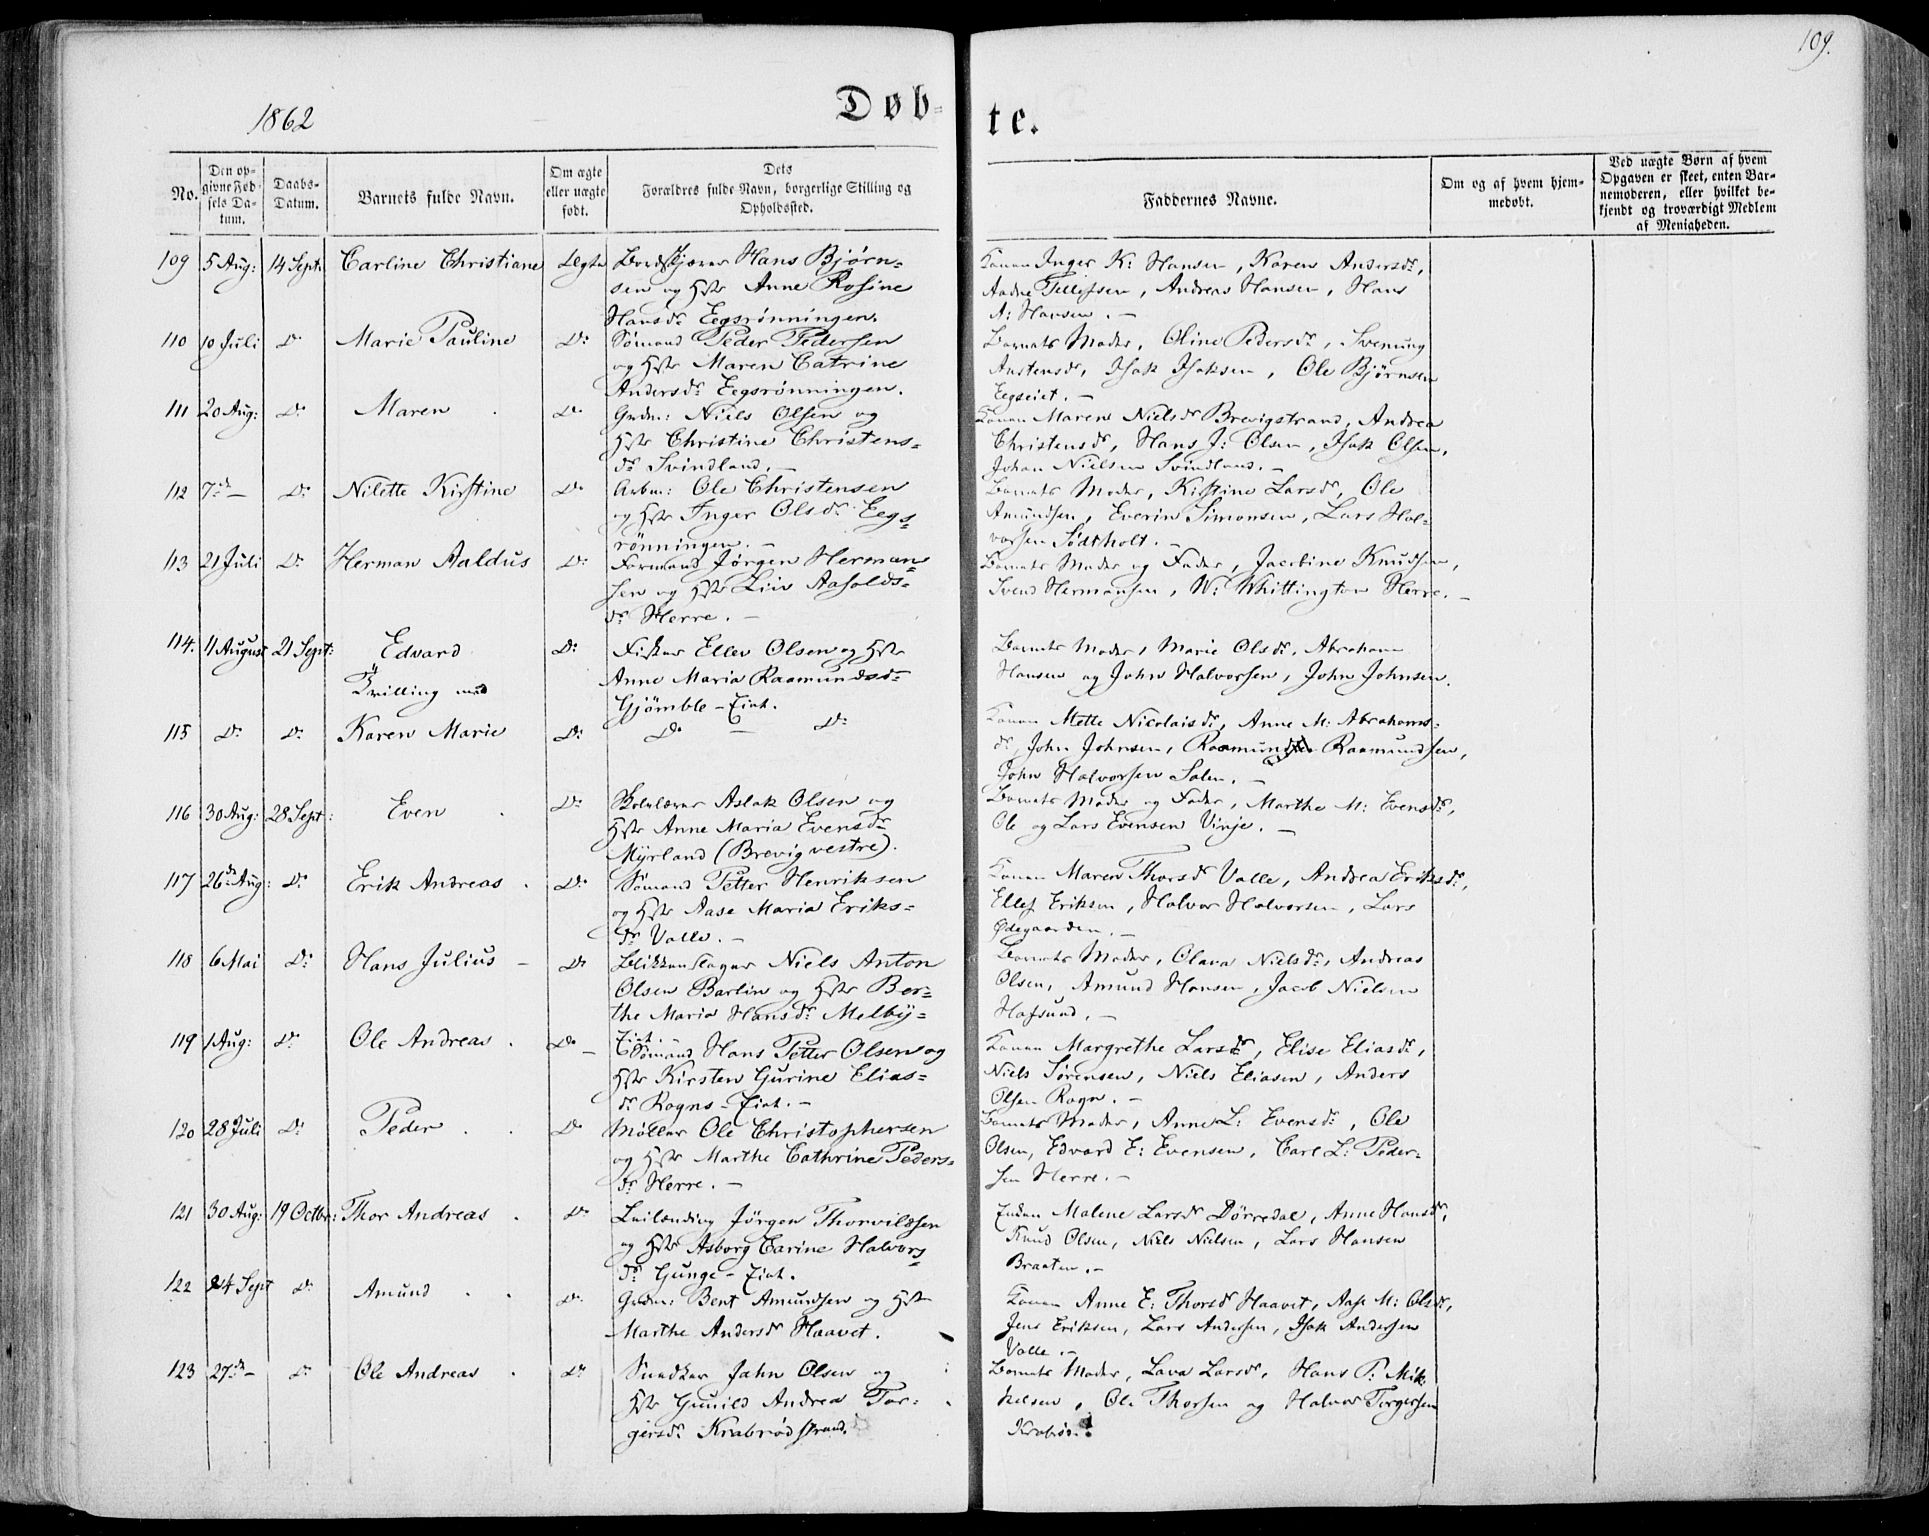 109.
1862
Døb-
te.
No.
Den op-
givne Fød-
sels Da-
tum.
Daabs-
Datum.
Barnets fulde Navn.
Om ægte
eller uægte
født.
Dets
Forældres fulde Navn, borgerlige Stilling og
Opholdssted.
Faddernes Navne.
Om og af hvem hjem-
medøbt.
Ved uægte Børn af hvem
Opgaven er skeet, enten Bar-
nemoderen, eller hvilket be-
kjendt og troværdigt Medlem
af Menigheden.
109 5 Aug: 14 Sept: Carline Christiane Ægte Bordskjærer Hans Bjørn-
sen og Hstr Anne Rosine
Hansdr Eegsrønningen.
Konen Inger K: Hansen, Karen Andersdr,
Aadne Tellefsen, Andreas Hansen, Hans
A: Hansen. -
110 10 Juli Do Marie Pauline Do Sømand Peder Pedersen
og Hstr Maren Catrine
Andersdr Eegsrønningen.
Barnets Moder, Oline Pedersdr, Svenung
Austensdr, Isak Isaksen, Ole Bjørnsen
Eegseiet. -
111 20 Aug: Do Maren Do Grdm: Niels Olsen og
Hstr Christine Christens-
dr Svindland. -
Konen Maren Nielsdr Brevigstrand, Andrea
Christensdr, Hans J: Olsen, Isak Olsen,
Johan Nielsen Svindland. -
112 7de - Do Nilette Kirstine Do Arbm: Ole Christensen
og Hstr Inger Olsdr Eegs-
rønningen. -
Barnets Moder, Kirstine Larsdr, Ole
Amundsen, Everin Simonsen, Lars Hal-
vorsen Sødtholt. -
113 21 Juli Do Herman Aaldus Do Formand Jørgen Herman-
sen og Hstr Liv Aasolds-
dr Herre. -
Barnets Moder og Fader, Jacobine Knudsen,
Svend Hermansen, W: Whittington Herre. -
114. 11 August 21 Sept: Edvard
Tvilling med
Do Fisker Ellev Olsen og Hstr
Anne Maria Raamundsdr
Gjømble-Eiet.
Barnets Moder, Marie Olsdr, Abraham
Hansen og John Halvorsen, John Johnsen.
115 Do Do Karen Marie Do Do - Do
Konen Mette Nicolaisdr, Anne M: Abrahams-
dr, John Johnsen, Raamund Raamundsen,
John Halvorsen Salen. -
116 30 Aug: 28 Sept: Even Do Skolelærer Aslak Olsen og
Hstr Anne Maria Evensdr
Myrland (Brevig vestre).
Barnets Moder og Fader, Marthe M: Evensdr,
Ole og Lars Evensen Vinje. -
117 26de Aug: Do Erik Andreas Do Sømand Petter Henriksen
og Hstr Aase Maria Eriks-
dr Valle. -
Konen Maren Thorsdr Valle, Andrea Eriksdr,
Ellef Eriksen, Halvor Halvorsen, Lars
Ødegaarden. -
118 6 Mai Do Hans Julius - Do Blikkenslager Niels Anton
Olsen Barlin og Hstr Ber-
the Maria Hansdr Melby-
Eiet. -
Barnets Moder, Olava Nielsdr, Andreas
Olsen, Amund Hansen, Jacob Nielsen
Hafsund. -
119 1 Aug: Do Ole Andreas Do - Sømand Hans Petter Olsen og
Hstr Kirsten Gurine Elias-
dr Rogns-Eiet. -
Konen Margrethe Larsdr, Elise Eliasdr,
Niels Sørensen, Niels Eliasen, Anders
Olsen Rogn. -
120 28 Juli Do Peder Do Møller Ole Christophersen
og Hstr Marthe Cathrine Peders-
dr Herre. -
Barnets Moder, Anne L: Evensdr, Ole
Olsen, Edvard E: Evensen, Carl L: Peder-
sen Herre. -
121 30 Aug: 19 Octbr: Thor Andreas Do Leilænding Jørgen Thorvildsen
og Hstr Asborg Carine Halvors-
dr Gunge-Eiet.
Enken Malene Larsdr Dørredal, Anne Hansdr,
Knud Olsen, Niels Nielsen, Lars Hansen
Braaten. -
122 24 Sept Do Amund Do Grdm: Bent Amundsen og Hstr
Marthe Andersdr Haavet.
Konen Anne E: Thorsdr Haavet, Aase M: Olsdr,
Jens Eriksen, Lars Andersen, Isak Andersen
Valle. -
123 27de - Do Ole Andreas Do Snedker Jahn Olsen og
Hstr Gunild Andrea Tor-
gersdr Krabrødstrand.
Barnets Moder, Lava Larsdr, Hans P: Mik-
kelsen, Ole Thorsen og Halvor Torgersen